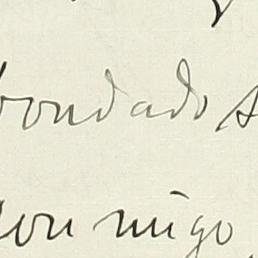 bondados
con migo